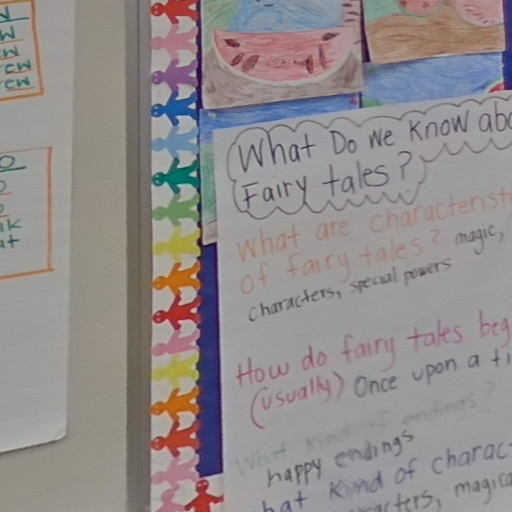 What Do we Know abo
Fairy tales?
What are characterist
of fairy tales? magic,
characters, special powers
How do fairy tales beg
(usually) Once upon a ti
What kind of endings?
happy endings
hat Kind of charac
acters, magica
W
CW
CW
O